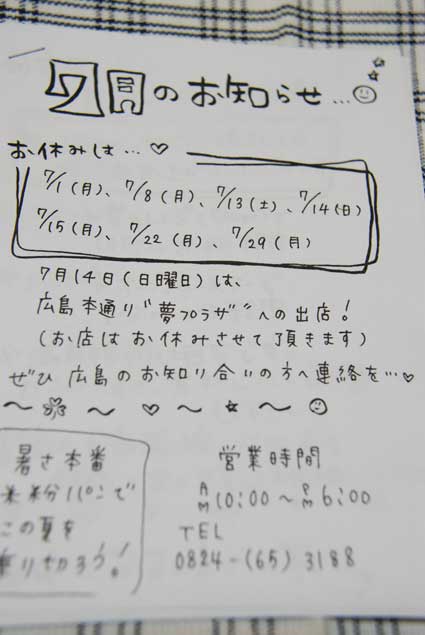 7月のお知らせ...
お休みは...♡
7/1(月)、7/8(月)、7/13(土)、7/14(日)
7/15(月)、7/22(月)、7/29(月)
7月14日(日曜日)は、
広島本通り"夢プラザ"への出店!
(お店はお休みさせて頂きます)
ぜひ 広島のお知り合いの方へ連絡を...♡
暑さ本番
米粉パンで
この夏を
乗り切ろう!
営業時間
AM10:00〜PM6:00
TEL
0824-(65)3188